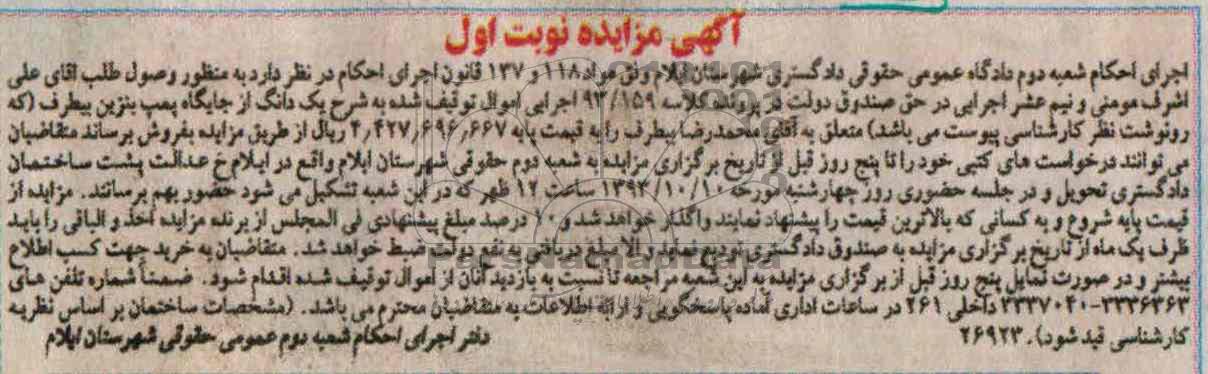 آگهی مزایده نوبت اول
اجرای احکام شعبه دوم دادگاه عمومی حقوقی دادگستری شهرستان ایلام وفق مواد ۱۱۸ و ۱۳۷ قانون اجرای احکام در نظر دارد به منظور وصول طلب آقای علی
اشرف مومنی و نیم عشر اجرایی در حق صندوق دولت در پرونده کلاسه ۹۳/۱۵۹ اجرایی اموال توقیف شده به شرح یک دانگ از جایگاه پمپ بنزین بیطرف (که
رونوشت نظر کارشناسی پیوست می باشد) متعلق به آقای محمدرضا بیطرف را به قیمت پایه ۴٫۴۲۷٫۶۹۶٫۶۶۷ ریال از طریق مزایده بفروش برساند متقاضیان
می توانند درخواست های کتبی خود را تا پنج روز قبل از تاریخ برگزاری مزایده به شعبه دوم حقوقی شهرستان ایلام واقع در ایلام خ عدالت پشت ساختمان
دادگستری تحویل و در جلسه حضوری روز چهارشنبه مورخه ۱۳۹۳/۱۰/۱۰ ساعت ۱۲ ظهر که در این شعبه تشکیل می شود حضور بهم برسانند. مزایده از
قیمت پایه شروع و به کسانی که بالاترین قیمت را پیشنهاد نمایند واگذار خواهد شد و ۱۰ درصد مبلغ پیشنهادی فی المجلس از برنده مزایده اخذ و الباقی را باید
ظرف یک ماه از تاریخ برگزاری مزایده به صندوق دادگستری تودیع نماید والا مبلغ دریافتی به نفع دولت ضبط خواهد شد. متقاضیان به خرید جهت کسب اطلاع
بیشتر و در صورت تمایل پنج روز قبل از برگزاری مزایده به این شعبه مراجعه تا نسبت به بازدید آنان از اموال توقیف شده اقدام شود. ضمناً شماره تلفن های
۳۳۳۶۳۶۳-۳۳۳۷۰۴۰ داخلی ۲۶۱ در ساعات اداری آماده پاسخگویی و ارائه اطلاعات به متقاضیان محترم می باشد. (مشخصات ساختمان بر اساس نظریه
کارشناسی قید شود). ۲۶۹۲۳
دفتر اجرای احکام شعبه دوم عمومی حقوقی شهرستان ایلام
ParsNamadData